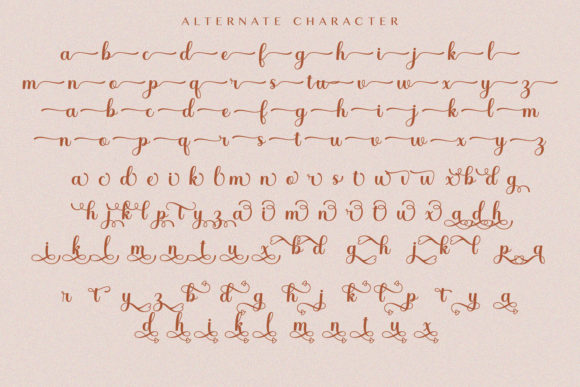 ALTERNATE CHARACTER
a b c d e f g h i j k l
m n o p q r s t u v w x y z
a b c d e f g h i j k l m
n o p q r s t u v w x y z
a c d e i k l m n o r s t u v w x b d g
h j k l p t y z a i m n r t u x a d h
i k l m n t u x b d g h j k l p q
r t y z b d g h j k l p t y q
d h i k l m n t u x